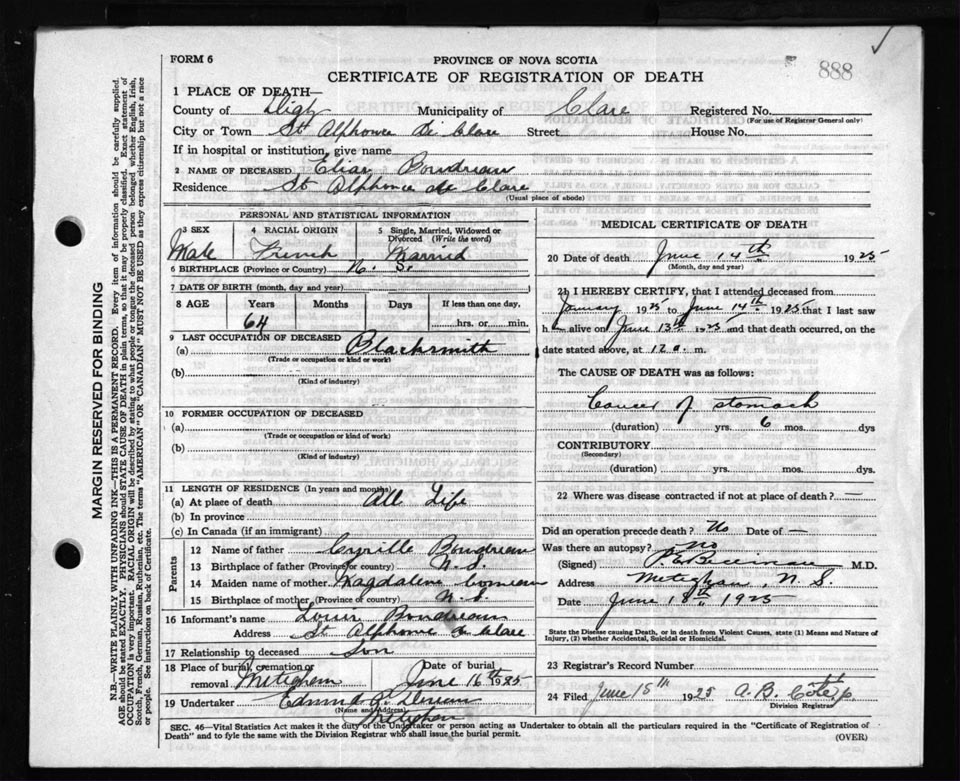 FORM 6
PROVINCE OF NOVA SCOTIA
CERTIFICATE OF REGISTRATION OF DEATH
888
1 PLACE OF DEATH—
County of Digby Municipality of Clare Registered No.
(For use of Registrar General only)
City or Town St Alphonse de Clare Street House No.
If in hospital or institution, give name
2 NAME OF DECEASED Elias Boudreau
Residence St Alphonse de Clare
(Usual place of abode)
PERSONAL AND STATISTICAL INFORMATION
3 SEX 4 RACIAL ORIGIN 5 Single, Married, Widowed or Divorced (Write the word)
Male French Married
6 BIRTHPLACE (Province or Country) N. S.
7 DATE OF BIRTH (month, day and year)
8 AGE Years Months Days If less than one day,
64 hrs. or min.
9 LAST OCCUPATION OF DECEASED
(a) Blacksmith
(Trade or occupation or kind of work)
(b)
(Kind of industry)
10 FORMER OCCUPATION OF DECEASED
(a)
(Trade or occupation or kind of work)
(b)
(Kind of industry)
11 LENGTH OF RESIDENCE (In years and months)
(a) At place of death All Life
(b) In province
(c) In Canada (if an immigrant)
Parents
12 Name of father Cyrille Boudreau
13 Birthplace of father (Province or country) N.S.
14 Maiden name of mother Magdalene Comeau
15 Birthplace of mother (Province or country) N.S.
16 Informant's name Louis Boudreau
Address St Alphonse de Clare
17 Relationship to deceased Son
18 Place of burial, cremation or removal Meteghan Date of burial June 16th 1925
19 Undertaker Edmund
(Name and Address) Meteghan
MEDICAL CERTIFICATE OF DEATH
20 Date of death June 14th 1925
(Month, day and year)
21 I HEREBY CERTIFY, that I attended deceased from
January 1925 to June 14th 1925 that I last saw
h alive on June 13th 1925 and that death occurred, on the
date stated above, at 12 a. m.
The CAUSE OF DEATH was as follows:
Cancer of stomach
(duration) yrs. 6 mos. dys
CONTRIBUTORY
(Secondary)
(duration) yrs. mos. dys.
22 Where was disease contracted if not at place of death? —
Did an operation precede death? No Date of —
Was there an autopsy? No
(Signed) P.E. Belliveau M.D.
Address Meteghan, N. S.
Date June 18th 1925
State the Disease causing Death, or in death from Violent Causes, state (1) Means and Nature of
Injury, (2) whether Accidental, Suicidal or Homicidal.
23 Registrar's Record Number
24 Filed June 18th 1925 A. B.
Division Registrar
SEC. 46—Vital Statistics Act makes it the duty of the Undertaker or person acting as Undertaker to obtain all the particulars required in the "Certificate of Registration of
Death" and to fyle the same with the Division Registrar who shall issue the burial permit.
(OVER)
MARGIN RESERVED FOR BINDING
N.B.—WRITE PLAINLY WITH UNFADING INK—THIS IS A PERMANENT RECORD. Every item of information should be carefully supplied.
AGE should be stated EXACTLY. PHYSICIANS should STATE CAUSE OF DEATH in plain terms, so that it may be properly classified. Exact statement of
OCCUPATION is very important. RACIAL ORIGIN will be described by stating to what people or tongue the deceased person belonged whether English, Irish,
Scotch, French, German, Russian, Ruthenian, etc. The terms "AMERICAN" OR "CANADIAN" MUST NOT BE USED as they express citizenship but not a race
or people. See instructions on back of Certificate.